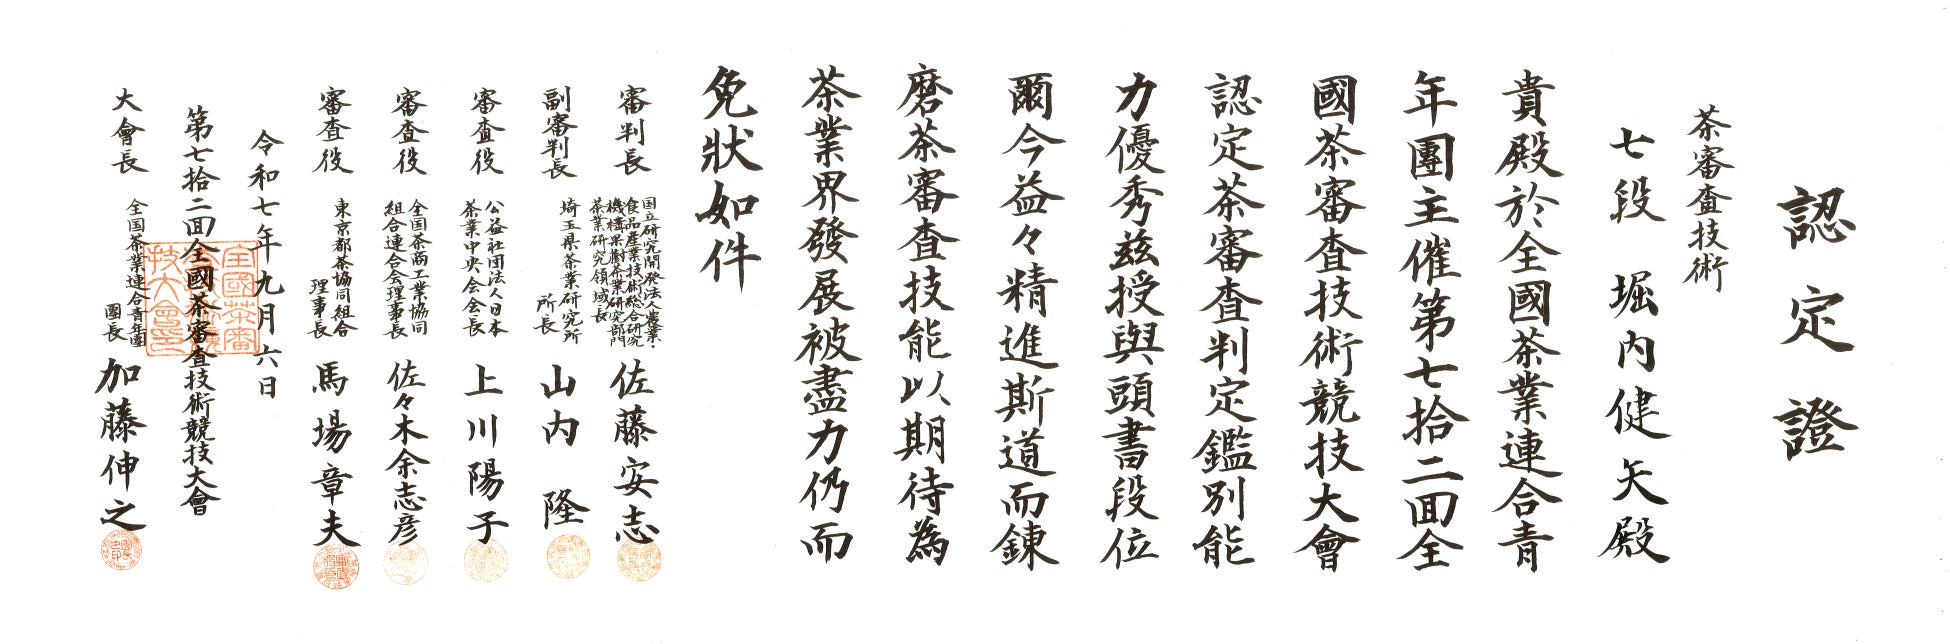 認定證
茶審査技術
七段　堀内健矢殿
貴殿於全國茶業連合青
年團主催第七拾二回全
國茶審査技術競技大會
認定茶審査判定鑑別能
力優秀茲授與頭書段位
爾今益々精進斯道而錬
磨茶審査技能以期待為
茶業界發展被盡力仍而
免狀如件
審判長
国立研究開発法人農業・
食品産業技術総合研究
機構果樹茶業研究部門
茶業研究領域長
佐藤安志
副審判長
埼玉県茶業研究所
所長
山内　隆
審査役
公益社団法人日本
茶業中央会会長
上川陽子
審査役
全国茶商工業協同
組合連合会理事長
佐々木余志彦
審査役
東京都茶協同組合
理事長
馬場章夫
令和七年九月六日
第七拾二回全國茶審査技術競技大會
大會長
全国茶業連合青年團
團長
加藤伸之